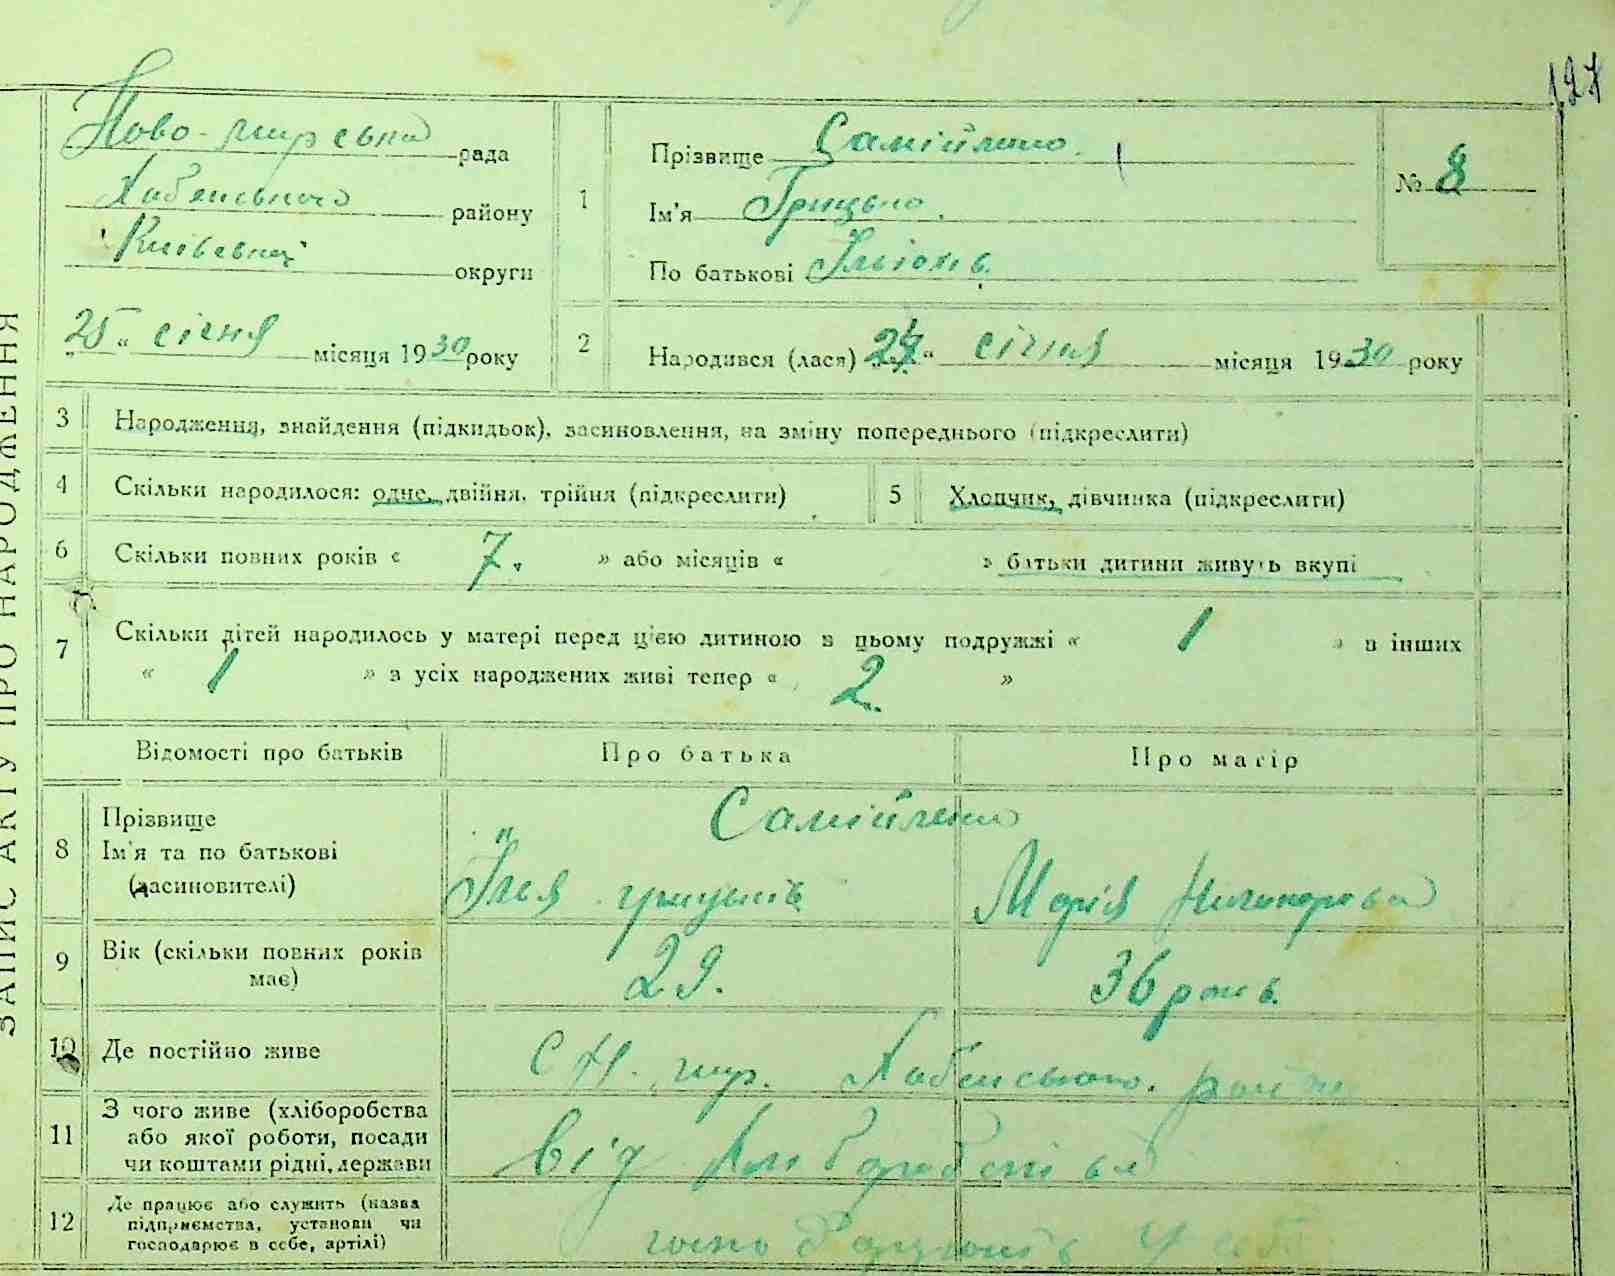 127
Ново-мирська рада
Хабенського району
Київської округи
25 " січня місяця 1930 року
1 Прізвище Самійленко.
Ім'я Грицько.
По батькові Ількків.
№ 8
2 Народився (лася) 24 " січня місяця 1930 року
ЗАПИС АКТУ ПРО НАРОДЖЕННЯ
3 Народження, знайдення (підкидьок), засиновлення, на зміну попереднього (підкреслити)
4 Скільки народилося: одне, двійня, трійня (підкреслити)
5 Хлопчик, дівчинка (підкреслити)
6 Скільки повних років « 7. » або місяців « » батьки дитини живуть вкупі
7 Скільки дітей народилось у матері перед цією дитиною в цьому подружжі « 1 » в інших
« 1 » з усіх народжених живі тепер « 2. »
Відомості про батьків Про батька Про матір
8 Прізвище
Ім'я та по батькові
(засиновителі)
Самійленко
Ілья Грицьків
Марія Никипорівна
9 Вік (скільки повних років
має)
29.
36 років.
10 Де постійно живе
С Н. мир. Хабенського. району
11 З чого живе (хліборобства
або якої роботи, посади
чи коштами рідні, держави
Від хліборобства
12 Де працює або служить (назва
підприємства, установи чи
господарює в себе, артілі)
у себе